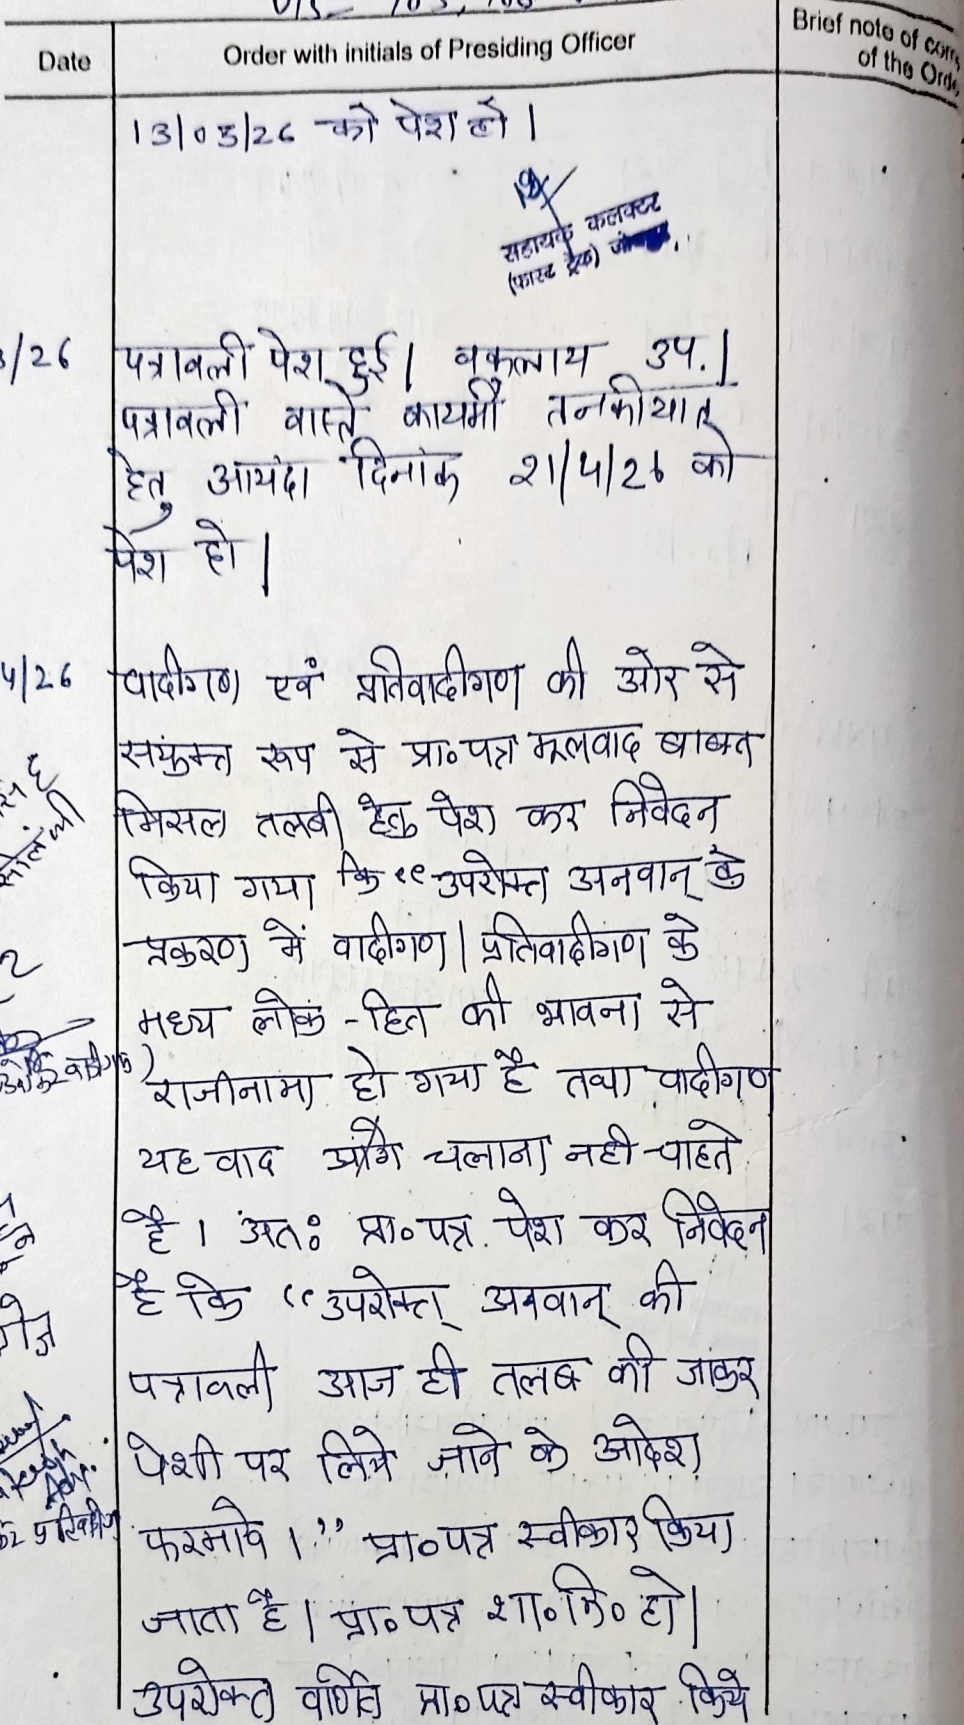 Date
Order with initials of Presiding Officer
Brief note of
of the
13/03/26 को पेश हो।
सहायक कलक्टर
(फास्ट ट्रैक)
/26 पत्रावली पेश हुई। वकुलाय उप.।
पत्रावली वास्ते कायमी तनकीयात
हेतु आयंदा दिनांक 21/4/26 को
पेश हो।
4/26 वादीगण एवं प्रतिवादीगण की ओर से
सयुंक्त रूप से प्रा०पत्र मूलवाद बाबत
मिसल तलबी हेतु पेश कर निवेदन
किया गया कि “उपरोक्त अनवान् के
प्रकरण में वादीगण/प्रतिवादीगण के
मध्य लोक-हित की भावना से
राजीनामा हो गया है तथा वादीगण
यह वाद आगे चलाना नही चाहते
है। अतः प्रा०पत्र पेश कर निवेदन
है कि “उपरोक्त् अनवान् की
पत्रावली आज ही तलब की जाकर
पेशी पर लिये जाने के आदेश
फरमावे।” प्रा०पत्र स्वीकार किया
जाता है। प्रा०पत्र शा०मि० हो।
उपरोक्त वर्णित प्रा०पत्र स्वीकार किये